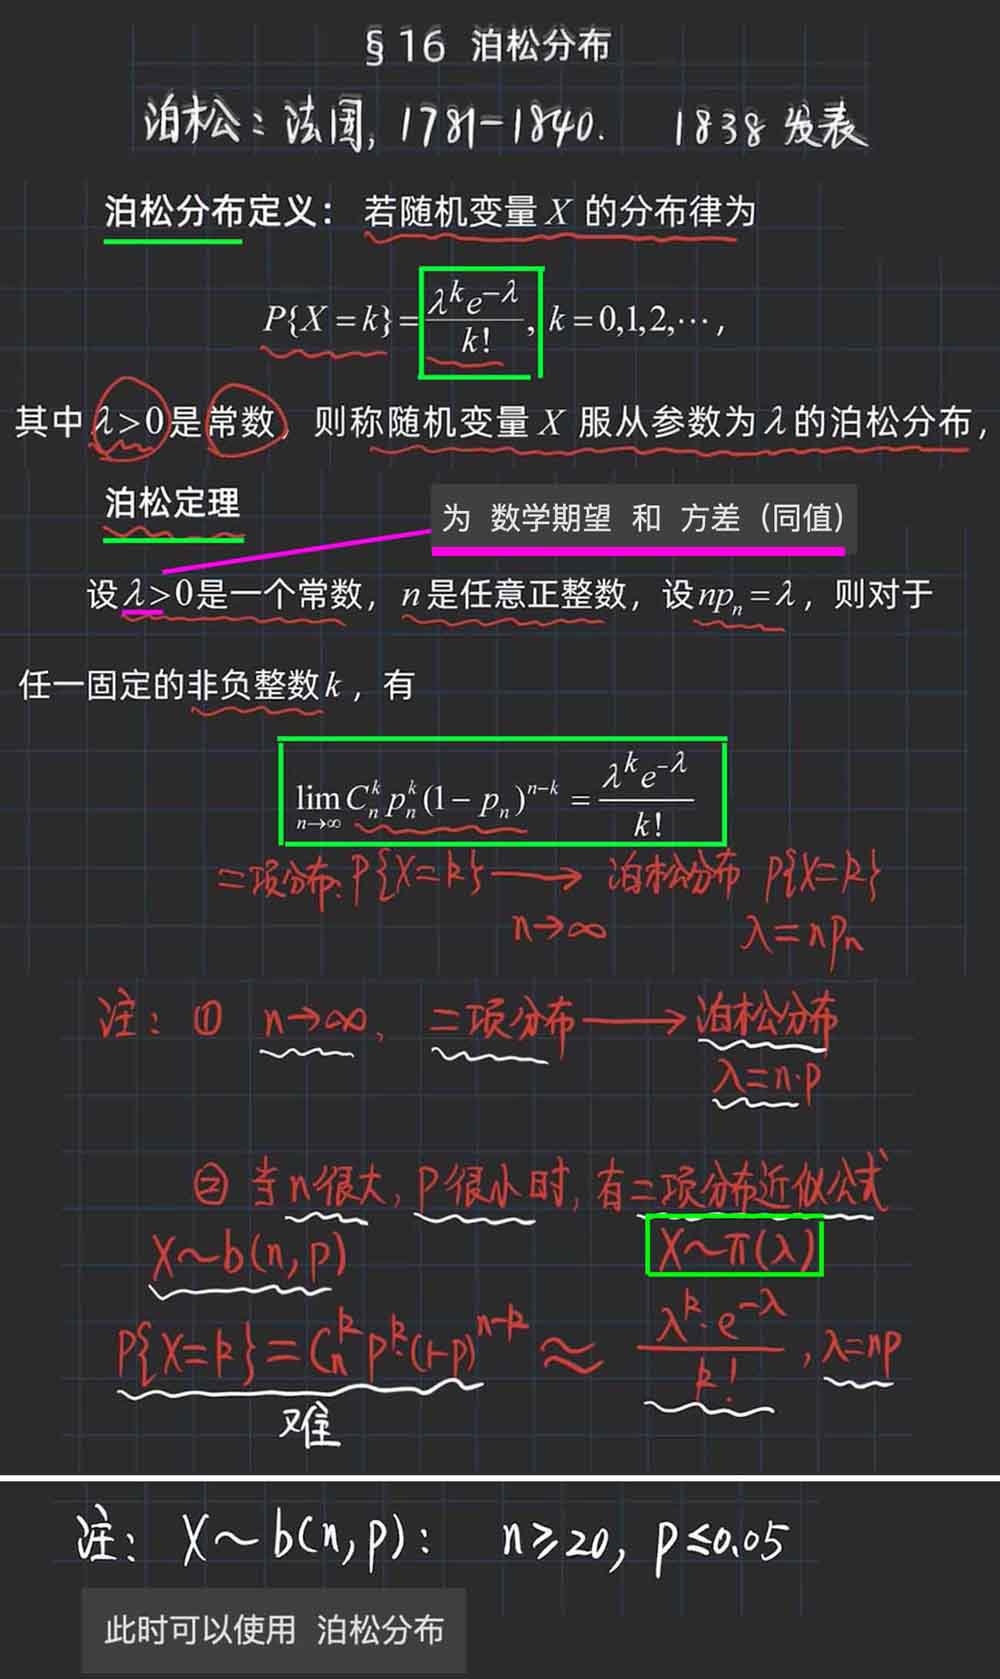 §16 泊松分布
泊松：法国, 1781-1840. 1838 发表
泊松分布定义： 若随机变量 X 的分布律为
P{X = k} = λ^k e^{-λ} / k!, k = 0,1,2,⋯,
其中 λ > 0 是常数，则称随机变量 X 服从参数为 λ 的泊松分布，
泊松定理
为 数学期望 和 方差（同值）
设 λ > 0是一个常数，n 是任意正整数，设 np_n = λ，则对于
任一固定的非负整数 k，有
lim_{n→∞} C_n^k p_n^k (1 − p_n)^{n−k} = λ^k e^{-λ} / k!
二项分布: P{X=k} ⟶ 泊松分布 P{X=k}
n→∞ λ=np_n
注: ① n→∞, 二项分布 ⟶ 泊松分布
λ=n·p
② 当n很大, p很小时, 有二项分布近似公式
X~b(n,p) X~π(λ)
P{X=k}=C_n^k p^k·(1-p)^{n-k} ≈ λ^k·e^{-λ} / k!, λ=np
难
注: X~b(n,p): n≥20, p≤0.05
此时可以使用 泊松分布